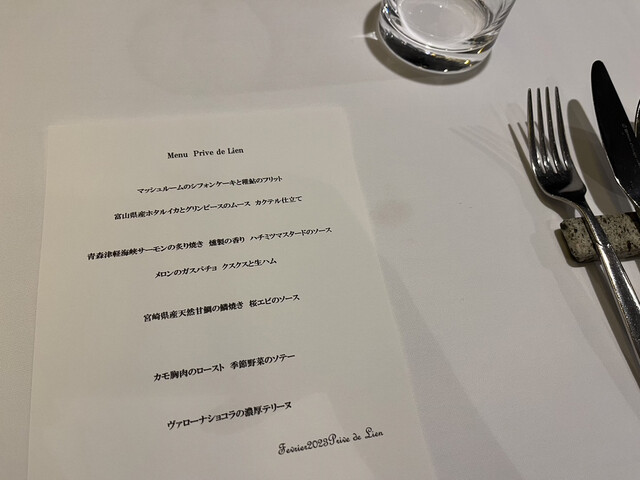 Menu Prive de Lien
マッシュルームのシフォンケーキと稚鮎のフリット
富山県産ホタルイカとグリンピースのムース カクテル仕立て
青森津軽海峡サーモンの炙り焼き 燻製の香り ハチミツマスタードのソース
メロンのガスパチョ クスクスと生ハム
宮崎県産天然甘鯛の鱗焼き 桜エビのソース
カモ胸肉のロースト 季節野菜のソテー
ヴァローナショコラの濃厚テリーヌ
Fevrier2023Prive de Lien